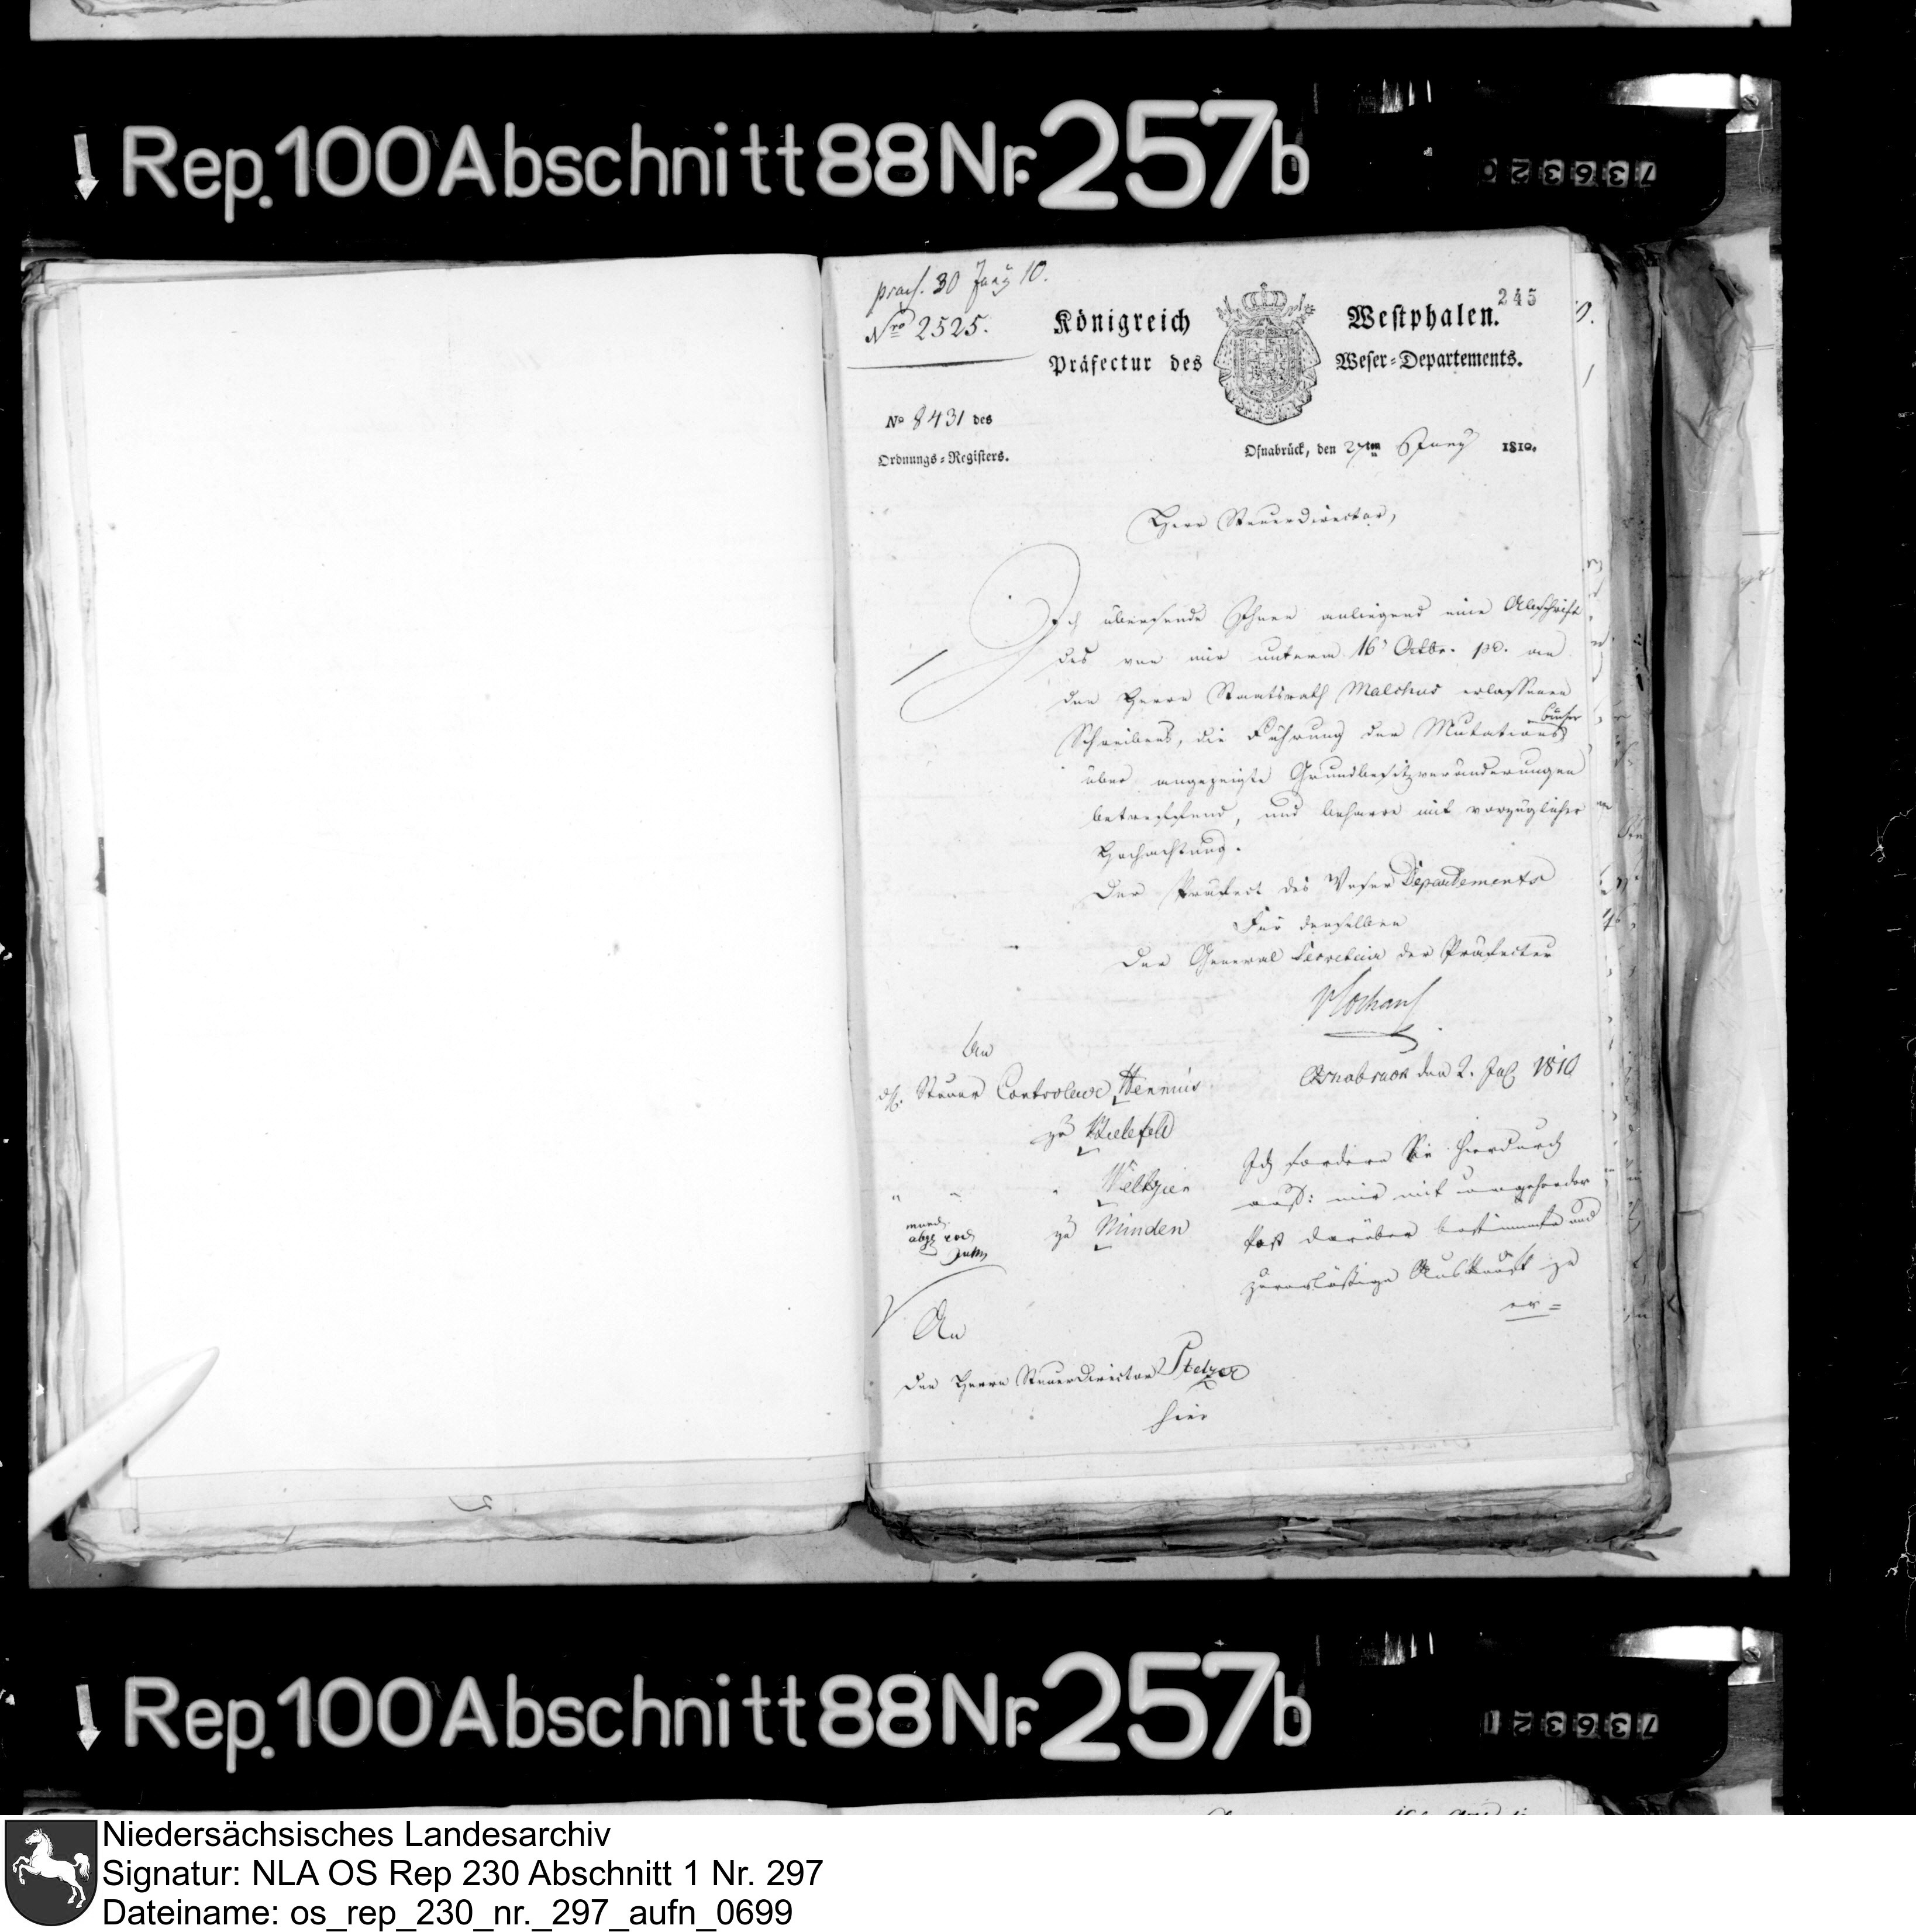 Rep. 100 Abschnitt 88 Nr. 257b
736320
praes. 30 Juny 10.
Nro 2525.
245
Königreich Westphalen.
Präfectur des Weser-Departements.
No 8431 des
Ordnungs-Registers.
Osnabrück, den 27ten Juny 1810.
Herr Steuerdirector,
Ich übersende Ihnen anliegend eine Abschrift
des von mir unterm 16 Octbr. pr. an
den Herrn Staatsrath Malchus erlassenen
Schreibens, die Führung der Mutations
bücher
über angezeigte Grundbesitzveränderungen
betreffend, und beharre mit vorzüglicher
Hochachtung.
Der Präfect des Weser Departements
Für denselben
Der General Secretair der Präfectur
An
Steuer Controleur Hennius
zu Bielefeld
" " " Weltzien
zu Minden
Osnabrück den 2. July 1810
Ich fordere Sie hierdurch
auf: mir mit umgehender
Post darüber bestimmte und
zuverlässige Auskunft zu
er=
An
den Herrn Steuerdirector Stelzer
hier
Rep. 100 Abschnitt 88 Nr. 257b
736321
Niedersächsisches Landesarchiv
Signatur: NLA OS Rep 230 Abschnitt 1 Nr. 297
Dateiname: os_rep_230_nr._297_aufn_0699